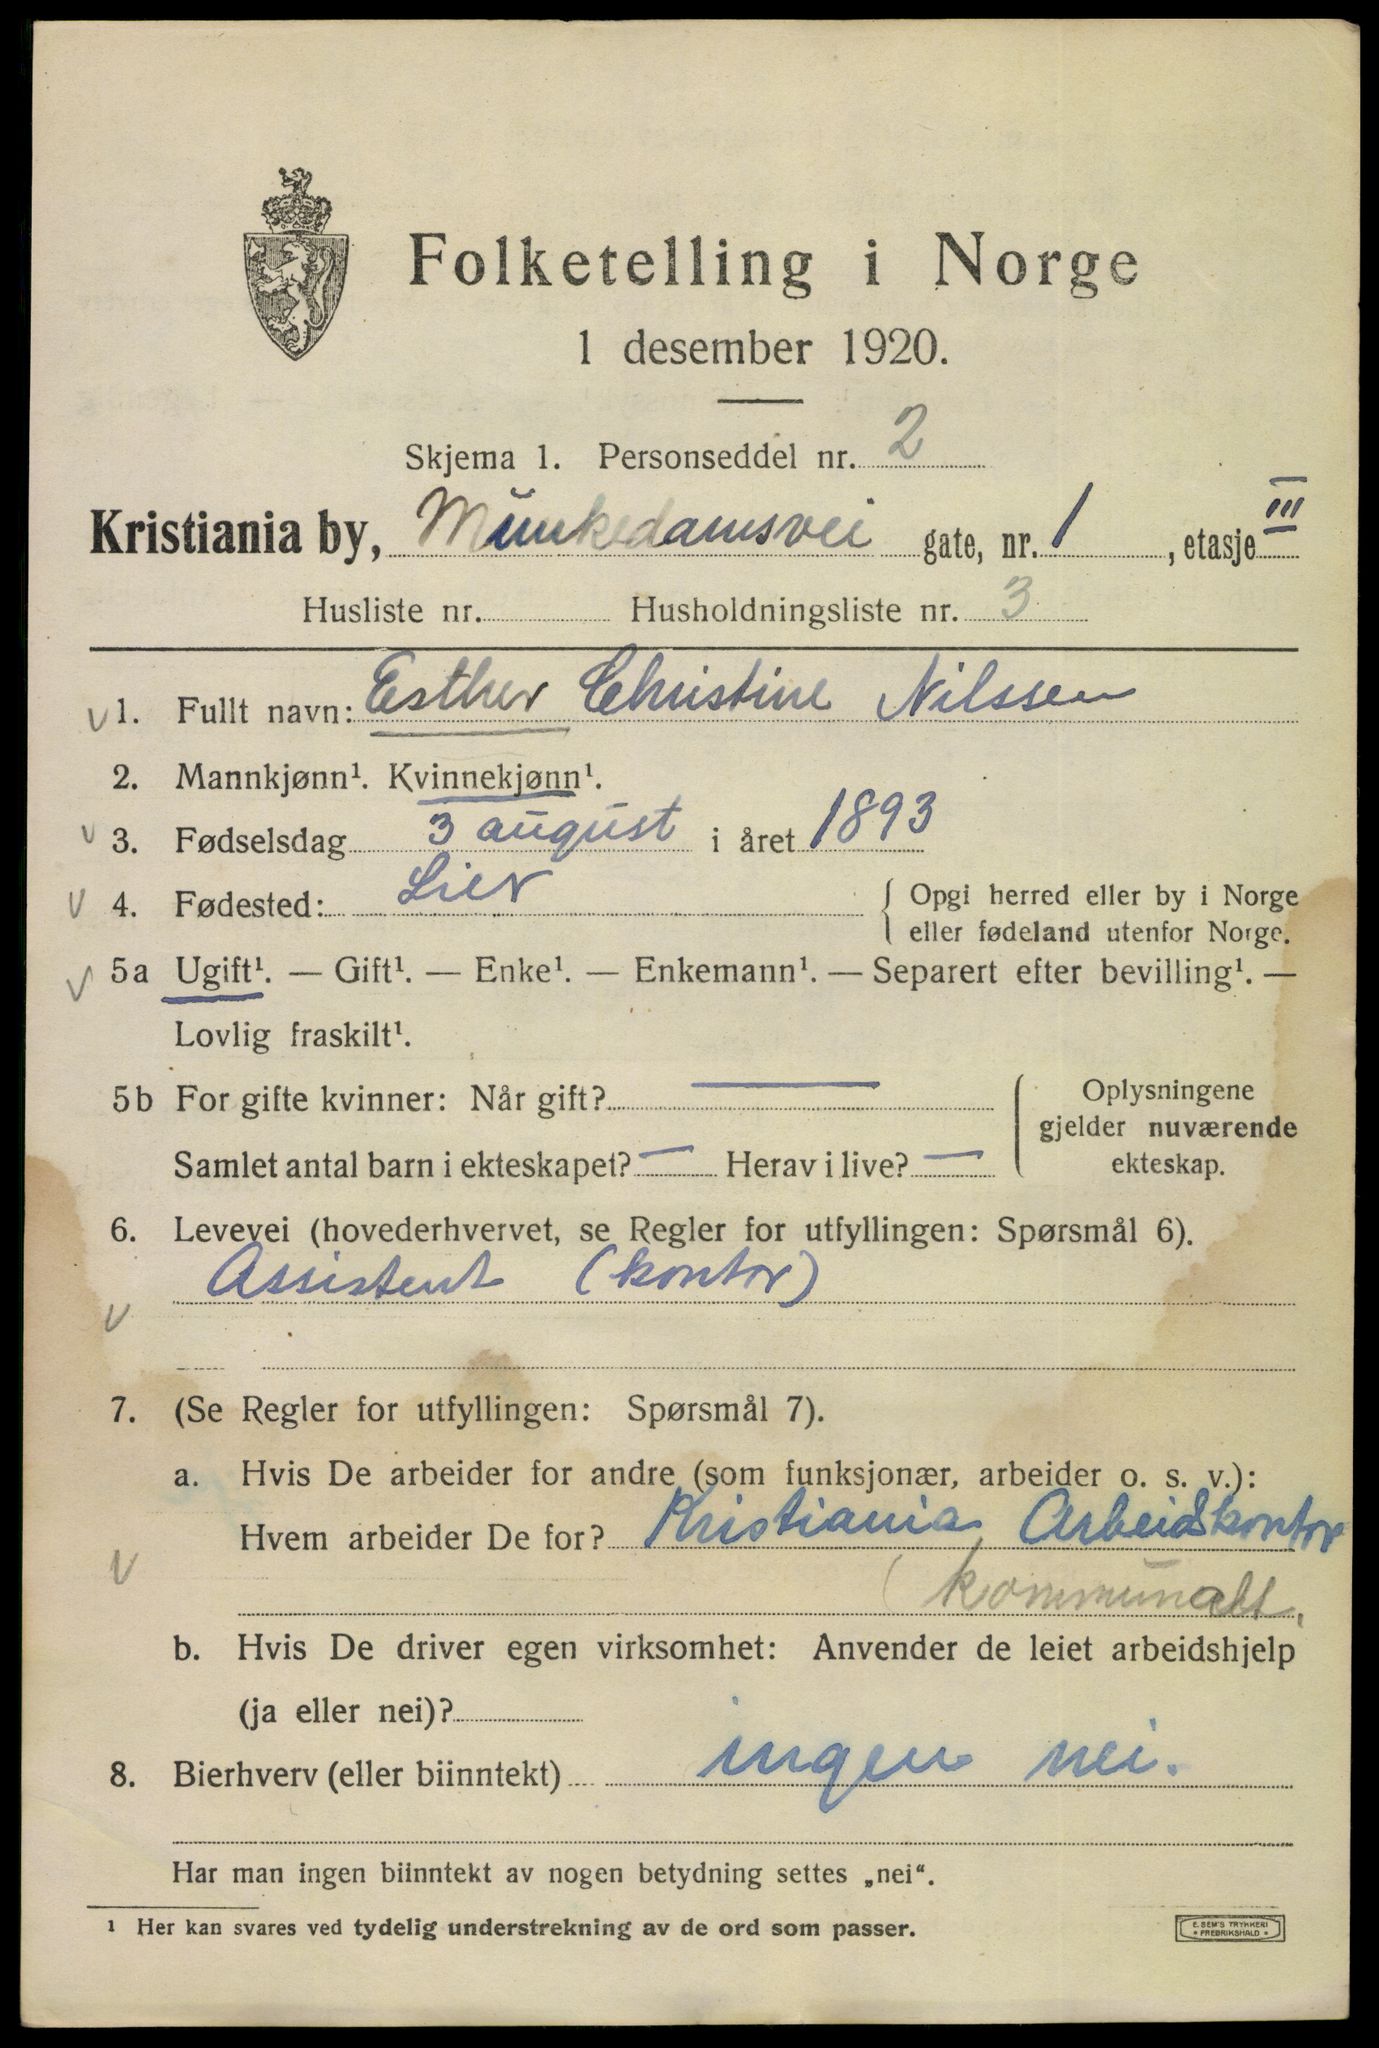 Folketelling i Norge
1 desember 1920.
Skjema 1. Personseddel nr. 2
Kristiania by, Munkedamsvei gate, nr. 1, etasje III
Husliste nr. Husholdningsliste nr. 3
1. Fullt navn: Esther Christine Nilssen
2. Mannkjønn¹. Kvinnekjønn¹.
3. Fødselsdag 3 august i året 1893
4. Fødested: Lier { Opgi herred eller by i Norge
eller fødeland utenfor Norge.
5a Ugift¹. — Gift¹. — Enke¹. — Enkemann¹. — Separert efter bevilling¹. —
Lovlig fraskilt¹.
5b For gifte kvinner: Når gift? —
Samlet antal barn i ekteskapet? — Herav i live? —
Oplysningene
gjelder nuværende
ekteskap.
6. Levevei (hovederhvervet, se Regler for utfyllingen: Spørsmål 6).
Assistent (kontor)
7. (Se Regler for utfyllingen: Spørsmål 7).
a. Hvis De arbeider for andre (som funksjonær, arbeider o. s. v.):
Hvem arbeider De for? Kristiania Arbeidskontor
(kommunalt,
b. Hvis De driver egen virksomhet: Anvender de leiet arbeidshjelp
(ja eller nei)?
8. Bierhverv (eller biinntekt) ingen nei.
Har man ingen biinntekt av nogen betydning settes „nei“.
¹ Her kan svares ved tydelig understrekning av de ord som passer.
E. SEM'S TRYKKERI
FREDRIKSHALD